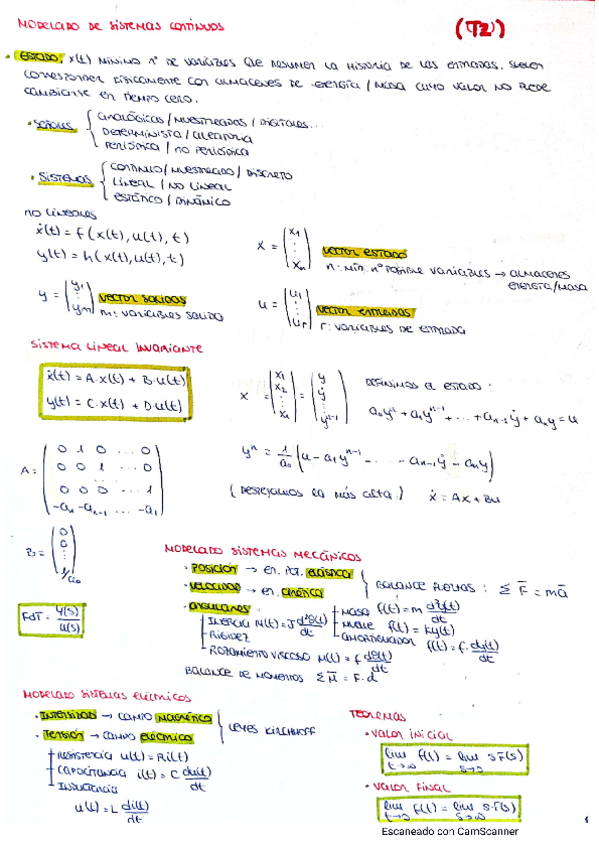 MODELADO DE SISTEMAS CONTINUOS (T2)
• ESTADO, x(t) mínimo nº de variables que resumen la historia de las entradas. Suelen
corresponder físicamente con almacenes de energía / masa cuyo valor no puede
cambiarse en tiempo cero.
• SEÑALES { analógicas / muestreadas / digitales...
determinista / aleatoria
periódica / no periódica
• SISTEMAS { continuo / muestreado / discreto
lineal / no lineal
estático / dinámico
no lineales
ẋ(t) = f(x(t), u(t), t)
y(t) = h(x(t), u(t), t)
x = (x1 ⋮ xn) vector estado
n: mín. nº posible variables → almacenes
energía/masa
y = (y1 ⋮ ym) vector salidas
m: variables salida
u = (u1 ⋮ ur) vector entradas
r: variables de entrada
SISTEMA LINEAL INVARIANTE
ẋ(t) = A·x(t) + B·u(t)
y(t) = C·x(t) + D·u(t)
x = (x1 x2 ⋮ xn) = (y ẏ ⋮ yⁿ⁻¹)
Definimos el estado:
a₀yⁿ + a₁yⁿ⁻¹ + ... + aₙ₋₁ẏ + aₙy = u
yⁿ = 1/a₀ (u - a₁yⁿ⁻¹ - ... - aₙ₋₁ẏ - aₙy)
(Despejamos la más alta) ẋ = Ax + Bu
A = (0 1 0 ... 0
0 0 1 ... 0
...
0 0 0 ... 1
-aₙ -aₙ₋₁ ... -a₁)
B = (0 0 ⋮ 1/a₀)
FdT = Y(s)/U(s)
MODELADO SISTEMAS MECÁNICOS
• POSICIÓN → en. pot. elástica
• VELOCIDAD → en. cinética
} BALANCE FUERZAS: Σ F̄ = mā
• ANGULARES
INERCIA M(t) = J d²θ(t)/dt
RIGIDEZ
ROZAMIENTO VISCOSO M(t) = f dθ(t)/dt
MASA f(t) = m d²y(t)/dt
MUELLE f(t) = ky(t)
AMORTIGUADOR f(t) = f· dy(t)/dt
BALANCE DE MOMENTOS Σ M̄ = F·d
MODELADO SISTEMAS ELÉCTRICOS
• INTENSIDAD → CAMPO MAGNÉTICO
• TENSIÓN → CAMPO ELÉCTRICO
} LEYES KIRCHHOFF
RESISTENCIA u(t) = R·i(t)
CAPACITANCIA i(t) = C du(t)/dt
INDUCTANCIA
u(t) = L di(t)/dt
TEOREMAS
• VALOR INICIAL
lim f(t) = lim s F(s)
• VALOR FINAL
lim f(t) = lim s·F(s)
Escaneado con CamScanner